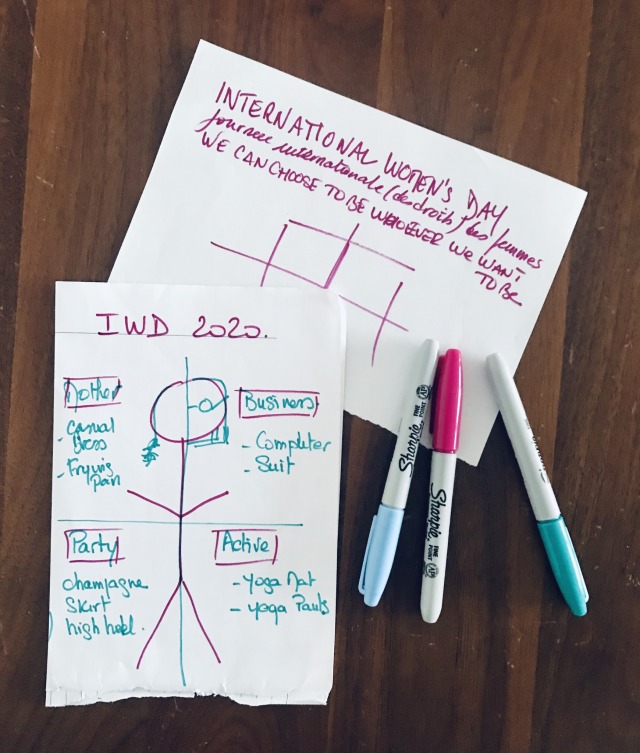 INTERNATIONAL WOMEN'S DAY
Journée internationale (des droits) des femmes
WE CAN CHOOSE TO BE WHOEVER WE WANT
TO BE
IWD 2020.
Mother
- Casual
Dress
- Frying
Pan
Business
- Computer
- Suit
Party
champagne
Skirt
high heel.
Active
- Yoga Mat
- Yoga Pants
Sharpie
FINE
POINT
AP
Sharpie
FINE
POINT
AP